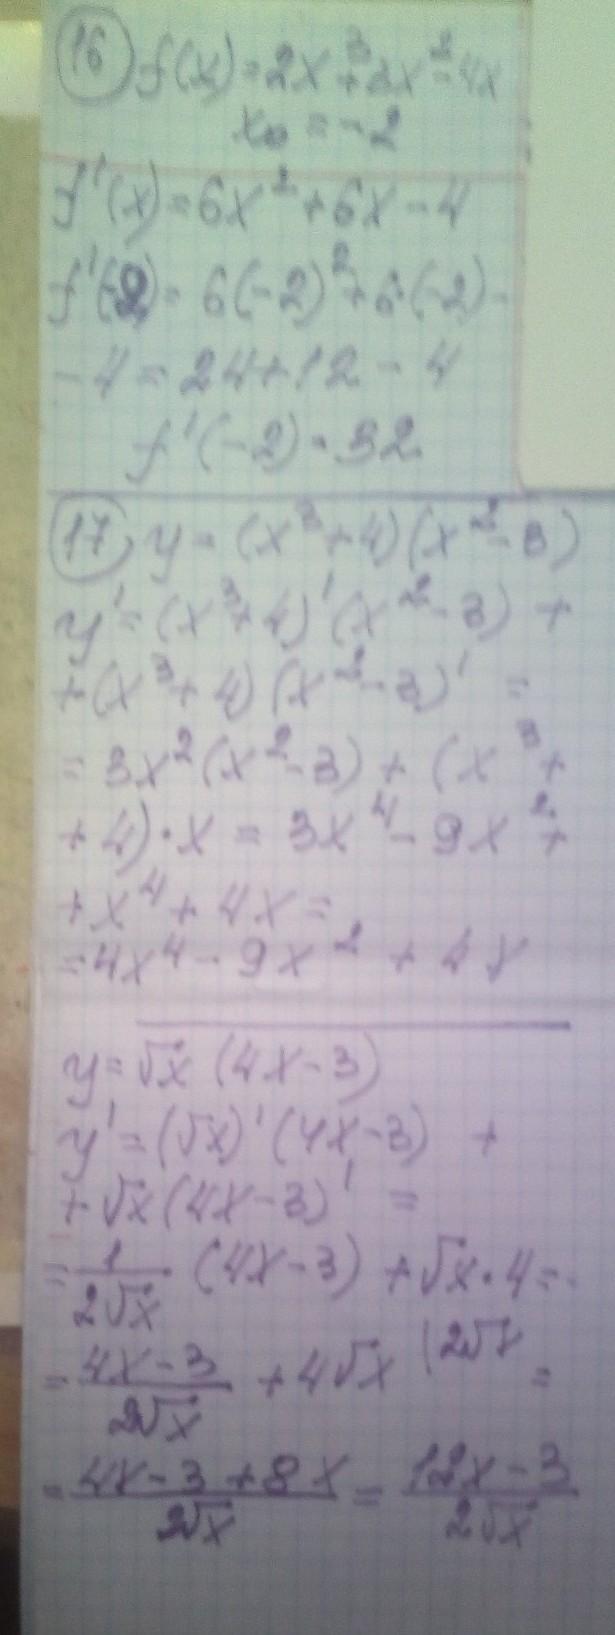 16 f(x)=2x³+3x²-4x
x₀ = -2
f'(x)=6x²+6x-4
f'(-2)= 6(-2)²+6·(-2)-
-4=24+12-4
f'(-2)=32.
17, y=(x³+4)(x²-3)
y'=(x³+4)'(x²-3) +
+(x³+4)(x²-3)' =
=3x²(x²-3)+(x³+
+4)·x = 3x⁴-9x²+
+x⁴+4x=
=4x⁴-9x²+4x
y=√x (4x-3)
y'=(√x)'(4x-3) +
+√x(4x-3)' =
=1/(2√x) (4x-3)+√x·4=
=(4x-3)/(2√x) +4√x (2√x =
=(4x-3+8x)/(2√x) = (12x-3)/(2√x)